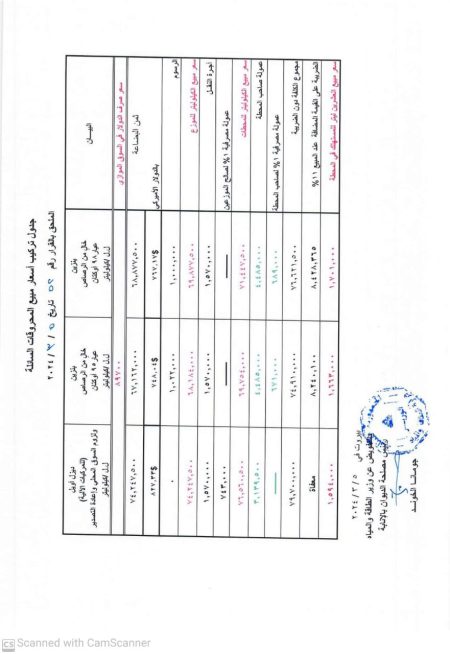 جدول تركيب أسعار مبيع المحروقات السائلة
الملحق بالقرار رقم ٥٢ تاريخ ٥ / ٣ / ٢٠٢٤
البيــــان
بنزين
خالٍ من الرصاص
عيار ٩٨ أوكتان
ل.ل/كيلوليتر
بنزين
خالٍ من الرصاص
عيار ٩٥ أوكتان
ل.ل/كيلوليتر
ديزل أويل
(للمركبات الآلية)
ولزوم السوق المحلي وإعادة التصدير
ل.ل/كيلوليتر
سعر صرف الدولار في السوق الموازي ٨٩٧٠٠
ثمن البضاعة ٦٨,٨٧٧,٥٠٠ ٦٧,١٦٢,٠٠٠ ٧٤,٢٤٧,٥٠٠
بالدولار الأميركي
الرسوم ١,٠٠٠,٠٠٠ ١,٠٢٢,٠٠٠ ٠
سعر مبيع الكيلوليتر للموزع ٦٩,٨٧٧,٥٠٠ ٦٨,١٨٤,٠٠٠ ٧٤,٢٤٧,٥٠٠
أجرة النقل ١,٥٧٠,٠٠٠ ١,٥٧٠,٠٠٠ ١,٥٧٠,٠٠٠
عمولة مصرفية ١% لصالح الموزعين ٧٤٣,٠٠٠
سعر مبيع الكيلوليتر للمحطات ٧١,٤٤٧,٥٠٠ ٦٩,٧٥٤,٠٠٠ ٧٦,٥٦٠,٥٠٠
عمولة صاحب المحطة ٤,٤٨٥,٠٠٠ ٤,٤٨٥,٠٠٠ ٣,١٣٩,٥٠٠
عمولة مصرفية ١% لصاحب المحطة ٦٨٩,٠٠٠ ٦٧١,٠٠٠
مجموع الكلفة دون الضريبة ٧٦,٦٢١,٥٠٠ ٧٤,٩١٠,٠٠٠ ٧٩,٧٠٠,٠٠٠
الضريبة على القيمة المضافة عند المبيع ١١% ٨,٤٢٨,٣٦٥ ٨,٢٤٠,١٠٠ معفاة
سعر مبيع العشرين ليتر للمستهلك في المحطة ١,٧٠١,٠٠٠ ١,٦٦٣,٠٠٠ ١,٥٩٤,٠٠٠
بيروت في ٥ / ٣ / ٢٠٢٤
بالتفويض عن وزير الطاقة والمياه
رئيس مصلحة الديوان بالإنابة
CS Scanned with CamScanner